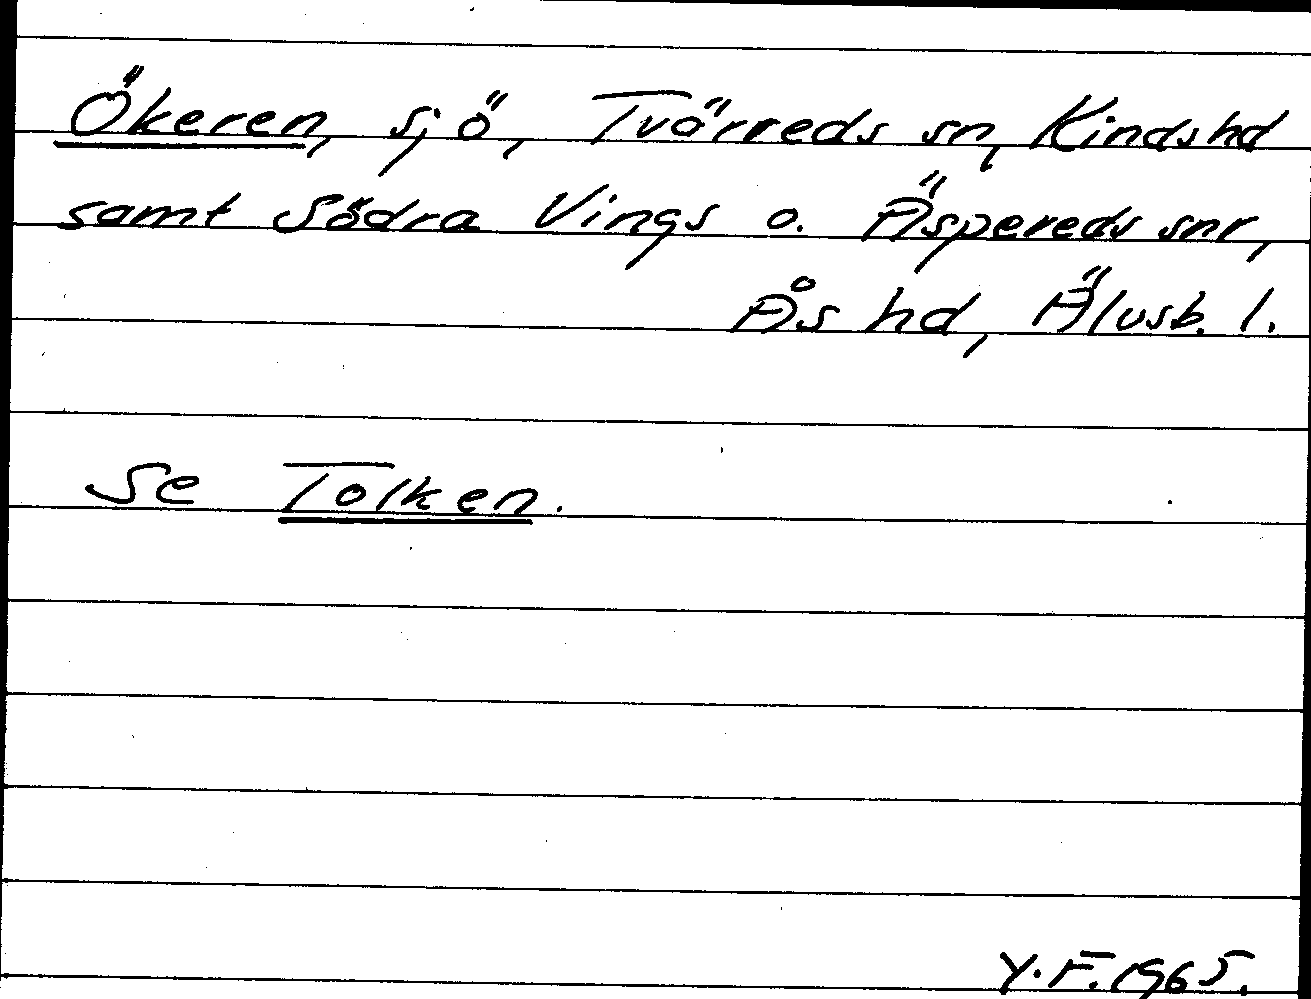 Ökeren, sjö, Tvärreds sn, Kinds hd
samt Södra Vings o. Äspereds snr,
Ås hd, Älvsb. l.
Se Tolken.
Y.F. 1965.